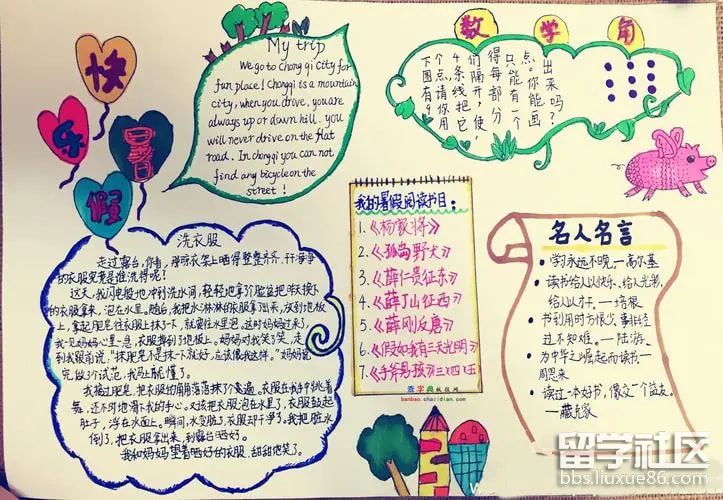 快
乐
暑
假
My trip
We go to Chong qi City for
fun place! Chongqi is a mountain
city, when you drive, you are
always up or down hill. you
will never drive on the flat
road. In chongqi you can not
find any bicycle on the
street!
数学角
下图有9
个点，请你用
4条线把它
们隔开，使
得每部分
只能有一个
点。你能画
出来吗？
洗衣服
走过露台，你看，那晾衣架上晒得整整齐齐、干干净净
的衣服究竟是谁洗得呢？
这天，我闪电般地冲到洗水间，轻轻地拿了脸盆把昨天换下
的衣服拿来，泡在水里。随后，我把水淋淋的衣服拿出来，放到地板
上，拿起肥皂往衣服上抹了一下，就塞往水里泡。这时妈妈过来了，
我一见妈妈心里一急，衣服掉到了地板上。妈妈对我笑了笑，走
到我跟前说，"抹肥皂不是抹一下就好，应该像我这样。"妈妈说
完做了个试范，我马上就懂了。
我擦过肥皂，把衣服的角角落落抹了个氦遍。衣服在我手中跳着
舞，还不时地滑下我的手心。又该把衣服泡在水里了，衣服鼓起
肚子，浮在水面上。瞬间，水变脏了，衣服却干净了。我把脏水
倒了，把衣服拿出来，到露台晒好。
我和妈妈望着晒好的衣服，甜甜地笑了。
我的暑假阅读书目：
1.《杨家将》
2.《孤岛野犬》
3.《薛仁贵征东》
4.《薛丁山征西》
5.《薛刚反唐》
6.《假如我有三天光明》
7.《手斧男孩》三、四、五
查字典板报网
banbao.chazidian.com
名人名言
• 学习永远不晚。—高尔基
• 读书给人以快乐、给人光彩、
给人以才干。—培根
• 书到用时方恨少，事非经
过不知难。—陆游。
• 为中华之崛起而读书—
周恩来
• 读过一本好书，像交一个益友。
—臧克家
留学社区
bbs.liuxue86.com